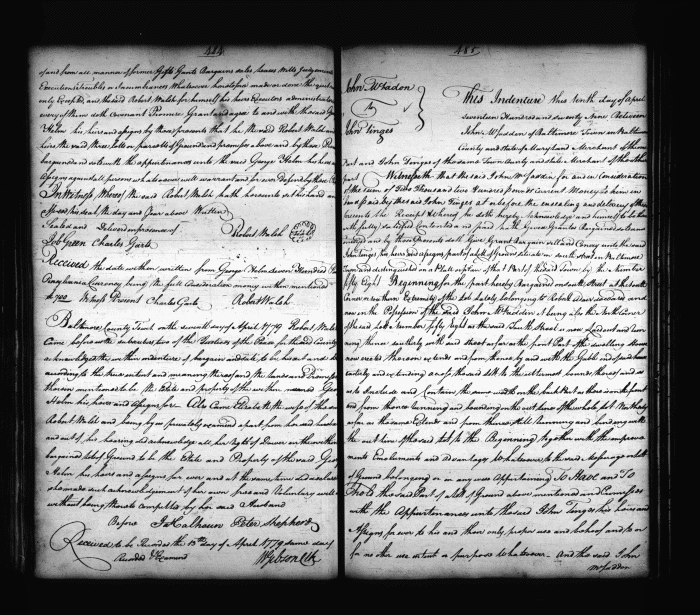 484
of and from all manner of former Gifts Grants Bargains sales leases Wills Judgements
Executions Troubles or Incumbrances Whatsoever heretofore made or done the quit
only Excepted and the said Robert Walsh for himself his heirs Executors administrators
every of them doth Covenant Promise Grant and agree to and with the said George
Helm his heirs and assigns by these presents that he the said Robert Walsh and
heirs the said three lotts or parcells of Ground and premises above and by these Presents
bargained and sold with the appurtenances unto the said George Helm his heirs and
assigns against all persons whatsoever will warrant and for ever Defend by these Presents
In Witness Whereof the said Robert Walsh hath hereunto set his hand and
affixed his seal the day and year above Written
Sealed and Delivered in presence of
Robert Walsh
Job Green Charles Garts
Received the date within written from George Helm seven Hundred Pounds
Pensylvania Currency being the full Consideration money within mentioned
£700 Witness Present Charles Garts Robert Walsh
Baltimore County Sct on the seventh day of April 1779 Robert Walsh
Came before us the subscribers two of the Justices of the Peace for the said County
acknowledged the within indenture of bargain and sale to be his act and deed
according to the true intent and meaning thereof and the lands and Premises
therein mentioned to be the Estate and property of the within named George
Helm his heirs and assigns for ever Also Came Elizabeth the wife of the said
Robert Walsh and being by us privately examined apart from her said husband
and out of his hearing did acknowledge all her right of Dower in the within
bargained lots of Ground to be the Estate and Property of the said George
Helm his heirs and assigns for ever and at the same time did declare
she made such acknowledgement of her own free and Voluntary will
without being thereto compelled by her said Husband
Before Js Calhoun Peter Shepherd
Received to be Recorded the 10th day of April 1779 same day
Recorded & Examined
Wm Gibson Clk
485
John McFadon
To
John Tinges
This Indenture this tenth day of April
seventeen Hundred and seventy Nine Between
John McFadon of Baltimore Town in Baltimore
County and state of Maryland Merchant of the one
part and John Tinges of the same Town County and state Merchant of the other
part Witnesseth that the said John McFadon for and in Consideration
of the sum of Two Thousand five Hundred pounds Current Money to him in
hand paid by the said John Tinges at or before the ensealing and delivery of these
presents the Receipt Whereof he doth hereby Acknowledge and himself to be there
with fully satisfied Contented and paid hath Given Granted Bargained sold and
and by these Presents doth Give Grant Bargain sell and Convey unto the said
John Tinges his heirs and assigns part of a lott of Ground situate on south street in Baltimore
Town and distinguished on a Plat of the of Town by the number
fifty Eight Beginning for the part hereby Bargained on south street at the
Corner or southern Extremity of the Lot lately belonging to Robert Adair deceased and
now in the Possession of the said John McFadon it being also the Northern Corner
of said Lot number fifty Eight as the said South Street is now laid out and running
thence southerly with said street as far as the front Part the dwelling House
now erected thereon extends and from thence by and with the Gable end of said house
westerly and extending across the said lot to the outermost bounds thereof and so
as to include and Contain the same width on the back Part as there is on the front
and from thence running and bounding on the out lines of the whole lot Northerly
as far as the same Extends and from thence still running and bounding with
the out lines of the said lot to the Beginning together with the improve
ments Emoluments and advantages Whatsoever to the said Part of a lott
of Ground belonging or in any wise Appertaining To Have and To
Hold the said Part of a lott of Ground above mentioned and Premises
with the Appurtenances unto the said John Tinges his heirs and
Assigns for ever to his and their only proper use and behoof and to or
for no other use intent or purpose Whatsoever And the said John
McFaddon